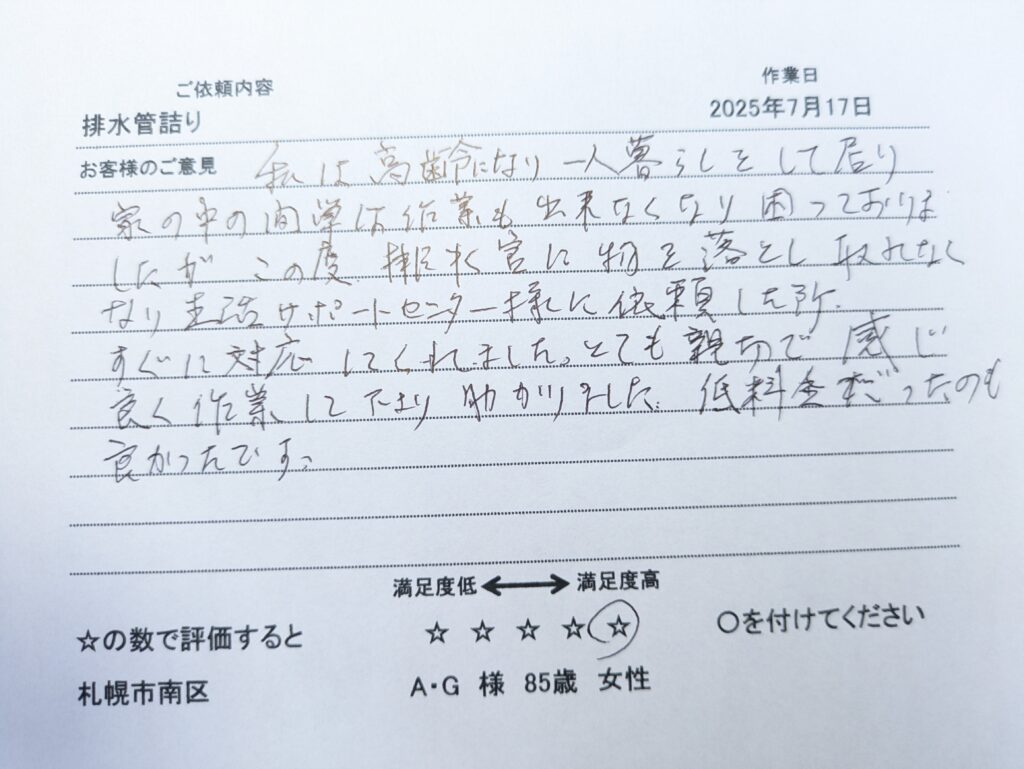 ご依頼内容
作業日
排水管詰り
2025年7月17日
お客様のご意見 私は高齢になり 一人暮らしをして居り
家の中の簡単な作業も出来なくなり困っておりま
したが この度 排水管に物を落とし取れなく
なり生活サポートセンター様に依頼した所、
すぐに対応してくれました。とても親切で感じ
良く作業して下さり助かりました。低料金だったのも
良かったです。
満足度低 ⟷ 満足度高
☆の数で評価すると ☆ ☆ ☆ ☆ ☆ 〇を付けてください
札幌市南区 A・G 様 85歳 女性